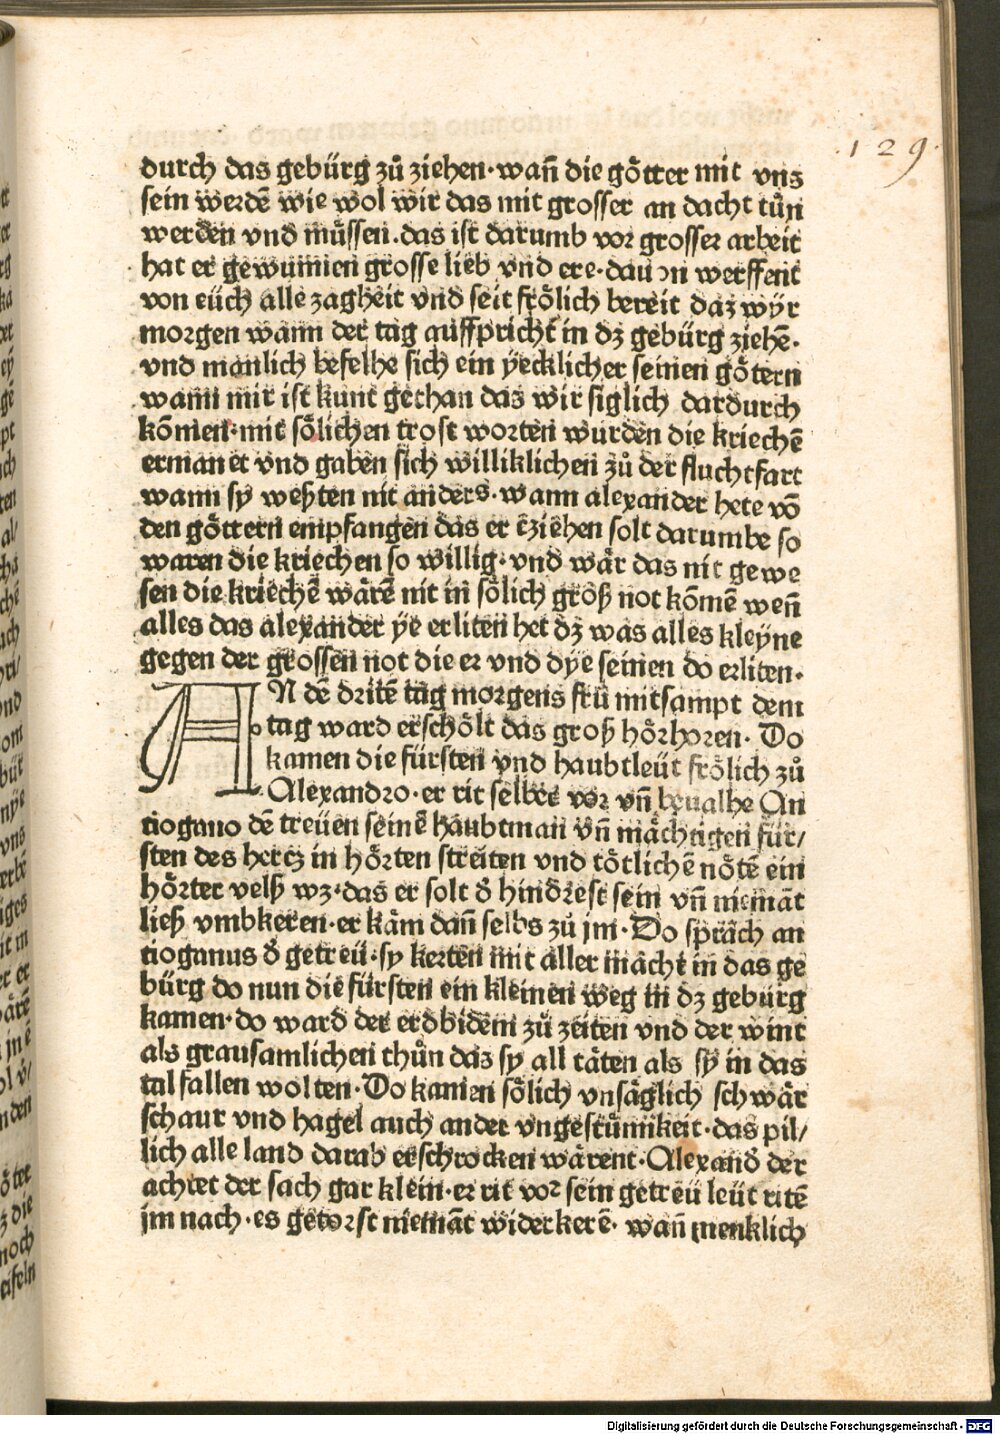 129.
durch das gebürg zů ziehen·wañ die götter mit vns
sein werdē wie wol wir das mit grosser an dacht tůn
werden vnd můssen.das ist darumb vor grosser arbeit
hat er gewunnen grosse lieb vnd ere·dauon werffent
von eüch alle zagheit vnd seit frölich bereit daz wyr
morgen wann der tag auffpricht in dz gebürg ziehē·
vnd manlich befelhe sich ein yecklicher seinen götern
wann mir ist kunt gethan das wir siglich dardurch
kōmen·mit sölichen trost worten wurden die kriechē
ermanet vnd gaben sich williklichen zů der fluchtfart
wann sy weßten nit anders·wann alexander hete vō
den göttern empfangen das er ēziehen solt darumbe so
waren die kriechen so willig·vnd wär das nit gewe
sen die kriechē wärē nit in sölich größ not kōmē weñ
alles das alexander ye erliten het dz was alles kleyne
gegen der grossen not die er vnd dye seinen do erliten.
AN dē dritē tag morgens frů mitsampt dem
tag ward erschölt das groß hörhoren· Do
kamen die fürsten vnd haubtleüt frölich zů
Alexandro·er rit selbes vor vñ beualhe An
tiogano dē treüen seinē haubtman vñ mächtigen für/
sten des hertz in hörten streiten vnd tötlichē nötē ein
hörter velß wz·das er solt d̄ hindrest sein vñ niemāt
ließ vmbkeren·er käm dañ selbs zů jm·Do spräch an
tioganus d̄ getreü·sy kerten mit aller mächt in das ge
bürg do nun die fürsten ein kleinen weg in dz gebürg
kamen·do ward der erdbidem zů zeiten vnd der wint
als grausamlichen thůn daz sy all täten als sy in das
tal fallen wolten·Do kamen sölich vnsäglich schwär
schaur vnd hagel auch ander vngestümikeit·das pil/
lich alle land darab erschrocken wärent·Alexand̄ der
achtet der sach gar klein·er rit vor sein getreü leüt ritē
jm nach·es getorst niemāt widerkerē· wañ menklich
Digitalisierung gefördert durch die Deutsche Forschungsgemeinschaft - DFG